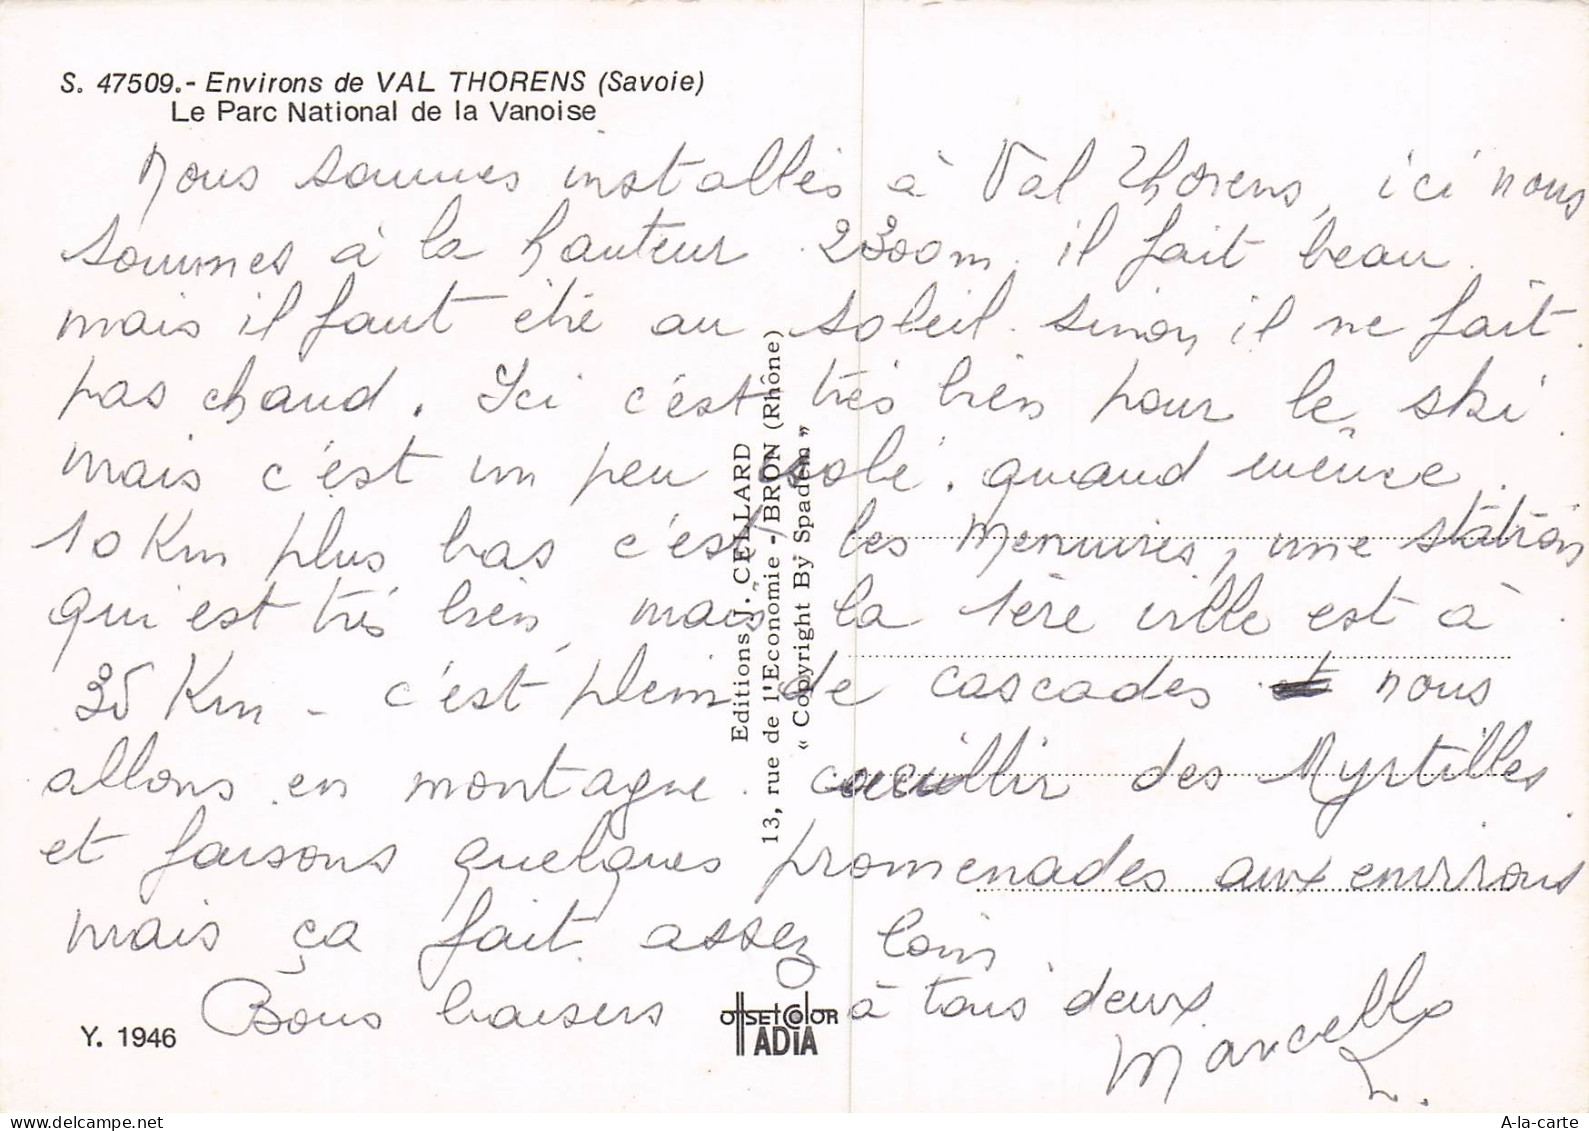 S. 47509.- Environs de VAL THORENS (Savoie)
Le Parc National de la Vanoise
Nous sommes installés à Val Thorens, ici nous
sommes à la hauteur 2300m. il fait beau
mais il faut être au soleil. sinon il ne fait
pas chaud. Ici c'est très bien pour le ski
mais c'est un peu isolé. quand même.
10 Km plus bas c'est les Menuires, une station
qui est très bien, mais la 1ère ville est à
35 Km - c'est plein de cascades nous
allons en montagne. cueillir des Myrtilles
et faisons quelques promenades aux environs
mais ça fait assez loin.
Bons baisers à tous deux
Marcelle
Editions J. CELLARD
13, rue de l'Economie - BRON (Rhône)
« Copyright By Spadem »
Y. 1946
OFFSET COLOR
ADIA
A-la-carte